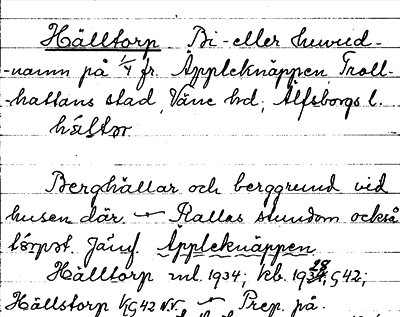 Hälltorp Bi- eller huvud-
-namn på 1/4 fr. Äppleknäppen, Troll-
-hättans stad, Väne hd; Älfsborgs l.
hältor
Berghällar och berggrund vid
husen där. — Kallas stundom också
tórpət. Jämf. Äppleknäppen
Hälltorp ml. 1934; kb. 19 G42;
Hällstorp G42 N.V. — Prep. på.